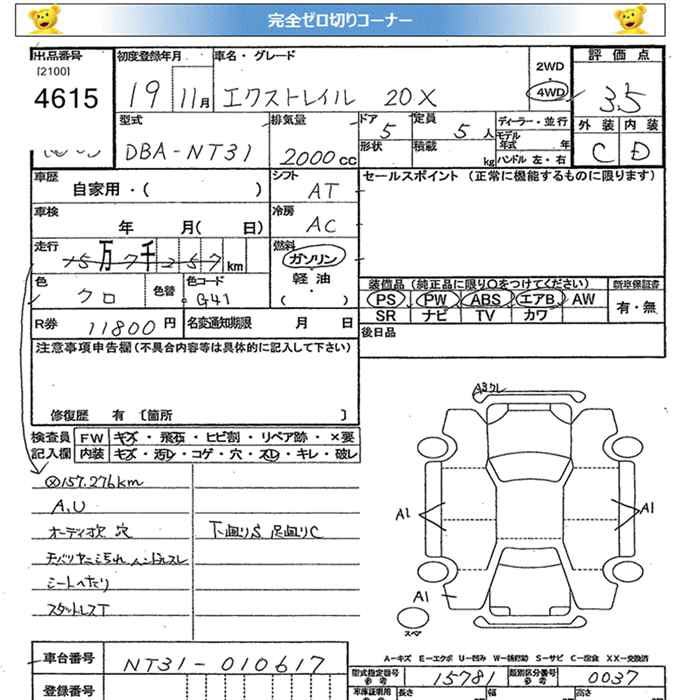 完全ゼロ切りコーナー
出品番号 初度登録年月 車名・グレード 2WD 評価点
[2100] 4WD
4615 19 11月 エクストレイル 20X 3.5
型式 排気量 ドア 定員 ディーラー・並行 外装 内装
5 5人 モデル年式 年
DBA-NT31 2000cc 形状 積載 kg ハンドル 左・右 C D
車歴 自家用・( ) シフト AT セールスポイント (正常に機能するものに限ります)
車検 年 月( 日) 冷房 AC
走行 15万7千257km 燃料 ガソリン
軽油
( )
色 クロ 色替 色コード G41 装備品 (純正品に限り○をつけてください) 新車保証書
PS PW ABS エアB AW 有・無
SR ナビ TV カワ
R券 11800円 名変通知期限 月 日 後日品
注意事項申告欄 (不具合内容等は具体的に記入して下さい)
修復歴 有 [箇所 ]
検査員 FW キズ・飛石・ヒビ割・リペア跡・×要
記入欄 内装 キズ・汚レ・コゲ・穴・スレ・キレ・破レ
157.276km
A.U
オーディオ欠 穴 下廻りS 足廻りC
シートヘたり
スタットレスT
A3クレ
A1 A1
A1
スペア
A-キズ E-エクボ U-凹み W-補修跡 S-サビ C-腐食 XX-交換済
車台番号 NT31-010617 型式指定番号 参考 15781 類別区分番号 参考 0037
登録番号 車庫証明用 参考 長さ 幅 高さ